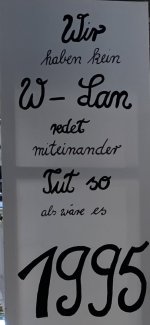 Wir
haben kein
W - Lan
redet
miteinander
Tut so
als wäre es
1995